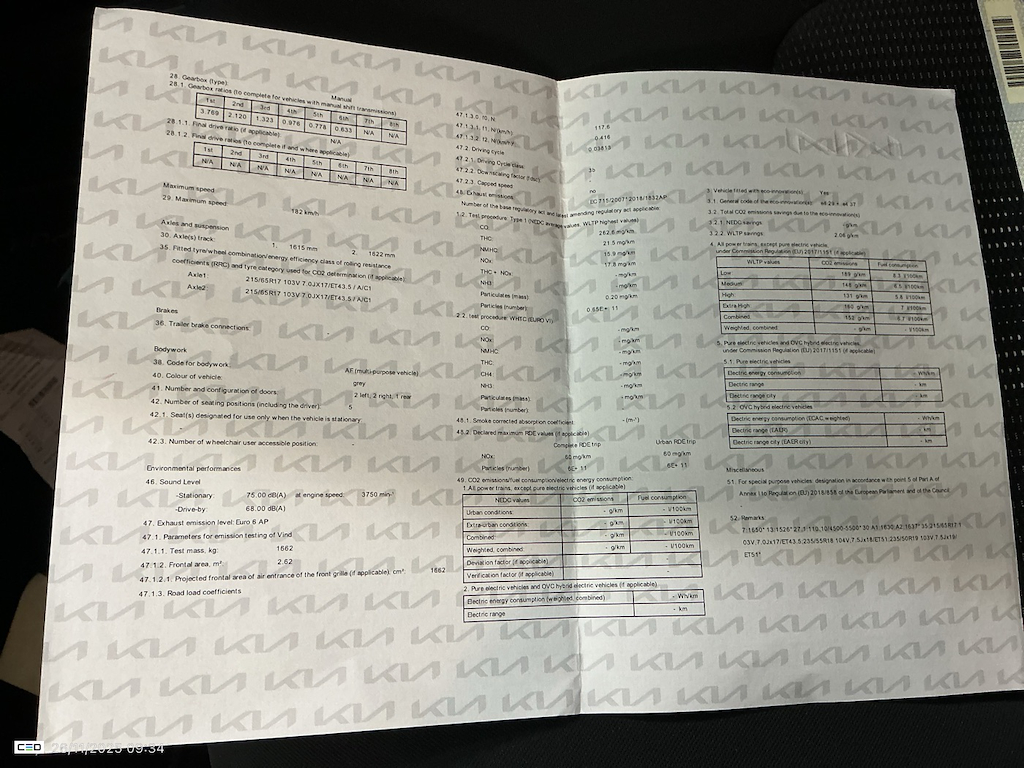 28. Gearbox (type): Manual
28.1. Gearbox ratios (to complete for vehicles with manual shift transmissions)
1st 2nd 3rd 4th 5th 6th 7th 8th
3.769 2.120 1.323 0.976 0.778 0.633 N/A N/A
28.1.1. Final drive ratio (if applicable): N/A
28.1.2. Final drive ratios (to complete if and where applicable)
1st 2nd 3rd 4th 5th 6th 7th 8th
N/A N/A N/A N/A N/A N/A N/A N/A
Maximum speed
29. Maximum speed: 182 km/h
Axles and suspension
30. Axle(s) track: 1. 1615 mm 2. 1622 mm
35. Fitted tyre/wheel combination/energy efficiency class of rolling resistance
coefficients (RRC) and tyre category used for CO2 determination (if applicable)
Axle1: 215/65R17 103V 7.0JX17/ET43.5 / A/C1
Axle2: 215/65R17 103V 7.0JX17/ET43.5 / A/C1
Brakes
36. Trailer brake connections: -
Bodywork
38. Code for bodywork: AF (multi-purpose vehicle)
40. Colour of vehicle: grey
41. Number and configuration of doors: 2 left, 2 right, 1 rear
42. Number of seating positions (including the driver): 5
42.1. Seat(s) designated for use only when the vehicle is stationary:
-
42.3. Number of wheelchair user accessible position: -
Environmental performances
46. Sound Level
-Stationary: 75.00 dB(A) at engine speed: 3750 min-¹
-Drive-by: 68.00 dB(A)
47. Exhaust emission level: Euro 6 AP
47.1. Parameters for emission testing of Vind
47.1.1. Test mass, kg: 1662
47.1.2. Frontal area, m²: 2.62
47.1.2.1. Projected frontal area of air entrance of the front grille (if applicable), cm²: 1662
47.1.3. Road load coefficients
47.1.3.0. f0, N: 117.6
47.1.3.1. f1, N/(km/h): 0.416
47.1.3.2. f2, N/(km/h)²: 0.03813
47.2. Driving cycle
47.2.1. Driving Cycle class: 3b
47.2.2. Downscaling factor (fdsc): -
47.2.3. Capped speed: no
48. Exhaust emissions: EC 715/2007*2018/1832AP
Number of the base regulatory act and latest amending regulatory act applicable:
1.2. Test procedure: Type 1 (NEDC average values, WLTP highest values)
CO: 262.6 mg/km
THC: 21.5 mg/km
NMHC: 15.9 mg/km
NOx: 17.8 mg/km
THC + NOx: - mg/km
NH3: - mg/km
Particulates (mass): 0.20 mg/km
Particles (number): 0.65E+ 11
2.2. test procedure: WHTC (EURO VI)
CO: - mg/km
NOx: - mg/km
NMHC: - mg/km
THC: - mg/km
CH4: - mg/km
NH3: - mg/km
Particulates (mass): - mg/km
Particles (number): -
48.1. Smoke corrected absorption coefficient: - (m-¹)
48.2. Declared maximum RDE values (if applicable)
Complete RDE trip Urban RDE trip
NOx: 60 mg/km 60 mg/km
Particles (number): 6E+ 11 6E+ 11
49. CO2 emissions/fuel consumption/electric energy consumption:
1.All power trains, except pure electric vehicles (if applicable)
NEDC values CO2 emissions Fuel consumption
Urban conditions: - g/km - l/100km
Extra-urban conditions: - g/km - l/100km
Combined: - g/km - l/100km
Weighted, combined: - g/km - l/100km
Deviation factor (if applicable) -
Verification factor (if applicable) -
2. Pure electric vehicles and OVC hybrid electric vehicles (if applicable)
Electric energy consumption (weighted, combined) - Wh/km
Electric range - km
3. Vehicle fitted with eco-innovation(s): Yes
3.1. General code of the eco-innovation(s): e8 29 + e4 37
3.2. Total CO2 emissions savings due to the eco-innovation(s)
3.2.1. NEDC savings: - g/km
3.2.2. WLTP savings: 2.06 g/km
4. All power trains, except pure electric vehicle,
under Commission Regulation (EU) 2017/1151 (if applicable)
WLTP values CO2 emissions Fuel consumption
Low: 189 g/km 8.3 l/100km
Medium: 148 g/km 6.5 l/100km
High: 131 g/km 5.8 l/100km
Extra High: 160 g/km 7 l/100km
Combined: 152 g/km 6.7 l/100km
Weighted, combined: - g/km - l/100km
5. Pure electric vehicles and OVC hybrid electric vehicles,
under Commission Regulation (EU) 2017/1151 (if applicable)
5.1. Pure electric vehicles
Electric energy consumption - Wh/km
Electric range - km
Electric range city - km
5.2. OVC hybrid electric vehicles
Electric energy consumption (ECAC,weighted) - Wh/km
Electric range (EAER) - km
Electric range city (EAER city) - km
Miscellaneous
51. For special purpose vehicles: designation in accordance with point 5 of Part A of
Annex I to Regulation (EU) 2018/858 of the European Parliament and of the Council:
-
52. Remarks:
03V 7.0Jx17/ET43.5;235/55R18 104V 7.5Jx18/ET51;235/50R19 103V 7.5Jx19/
ET51*
CEO
26/11/2025 09:34